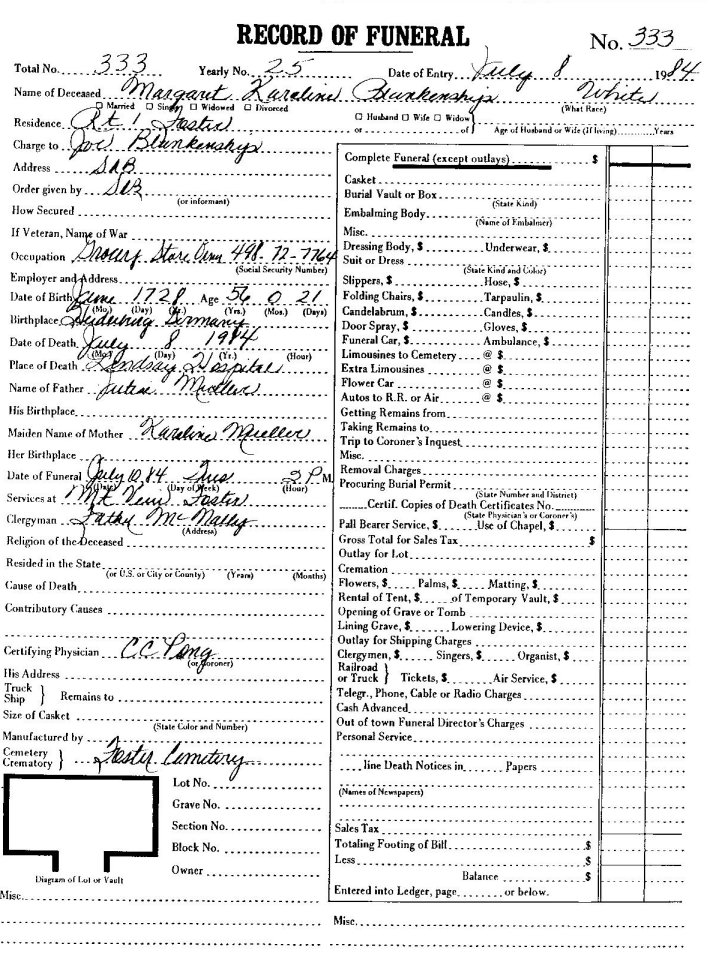 RECORD OF FUNERAL
No. 333
Total No. 333 Yearly No. 25 Date of Entry July 8 1984
Name of Deceased Margaret Karoline Blankenship White
☐ Married ☐ Single ☐ Widowed ☐ Divorced (What Race)
Residence Rt 1 Foster ☐ Husband ☐ Wife ☐ Widow
or of Age of Husband or Wife (If living) Years
Charge to Joe Blankenship
Address SAB
Order given by SAB
(or informant)
How Secured
If Veteran, Name of War
Occupation Grocery Store Owner 498-72-7764
(Social Security Number)
Employer and Address
Date of Birth June 17 28 Age 56 0 21
(Mo.) (Day) (Yr.) (Yrs.) (Mos.) (Days)
Birthplace Germany
Date of Death July 8 1984
(Mo.) (Day) (Yr.) (Hour)
Place of Death Lindsay Hospital
Name of Father Mueller
His Birthplace
Maiden Name of Mother Karoline Mueller
Her Birthplace
Date of Funeral July 10, 84 Tues 2 P M.
(Date) (Day of Week) (Hour)
Services at Mt Foster
Clergyman Father McNally
(Address)
Religion of the Deceased
Resided in the State
(or U.S. or City or County) (Years) (Months)
Cause of Death
Contributory Causes
Certifying Physician C C
(or Coroner)
His Address
Truck
Ship } Remains to
Size of Casket
(State Color and Number)
Manufactured by
Cemetery
Crematory } Foster Cemetery
Lot No.
Grave No.
Section No.
Block No.
Owner
Diagram of Lot or Vault
Misc.
Complete Funeral (except outlays) $
Casket
Burial Vault or Box
(State Kind)
Embalming Body
(Name of Embalmer)
Misc.
Dressing Body, $ Underwear, $
Suit or Dress
(State Kind and Color)
Slippers, $ Hose, $
Folding Chairs, $ Tarpaulin, $
Candelabrum, $ Candles, $
Door Spray, $ Gloves, $
Funeral Car, $ Ambulance, $
Limousines to Cemetery @ $
Extra Limousines @ $
Flower Car @ $
Autos to R.R. or Air @ $
Getting Remains from
Taking Remains to
Trip to Coroner's Inquest
Misc.
Removal Charges
Procuring Burial Permit
(State Number and District)
Certif. Copies of Death Certificates No.
(State Physician's or Coroner's)
Pall Bearer Service, $ Use of Chapel, $
Gross Total for Sales Tax $
Outlay for Lot
Cremation
Flowers, $ Palms, $ Matting, $
Rental of Tent, $ of Temporary Vault, $
Opening of Grave or Tomb
Lining Grave, $ Lowering Device, $
Outlay for Shipping Charges
Clergymen, $ Singers, $ Organist, $
Railroad
or Truck } Tickets, $ Air Service, $
Telegr., Phone, Cable or Radio Charges
Cash Advanced
Out of town Funeral Director's Charges
Personal Service
line Death Notices in Papers
(Names of Newspapers)
Sales Tax
Totaling Footing of Bill $
Less $
Balance $
Entered into Ledger, page or below.
Misc.